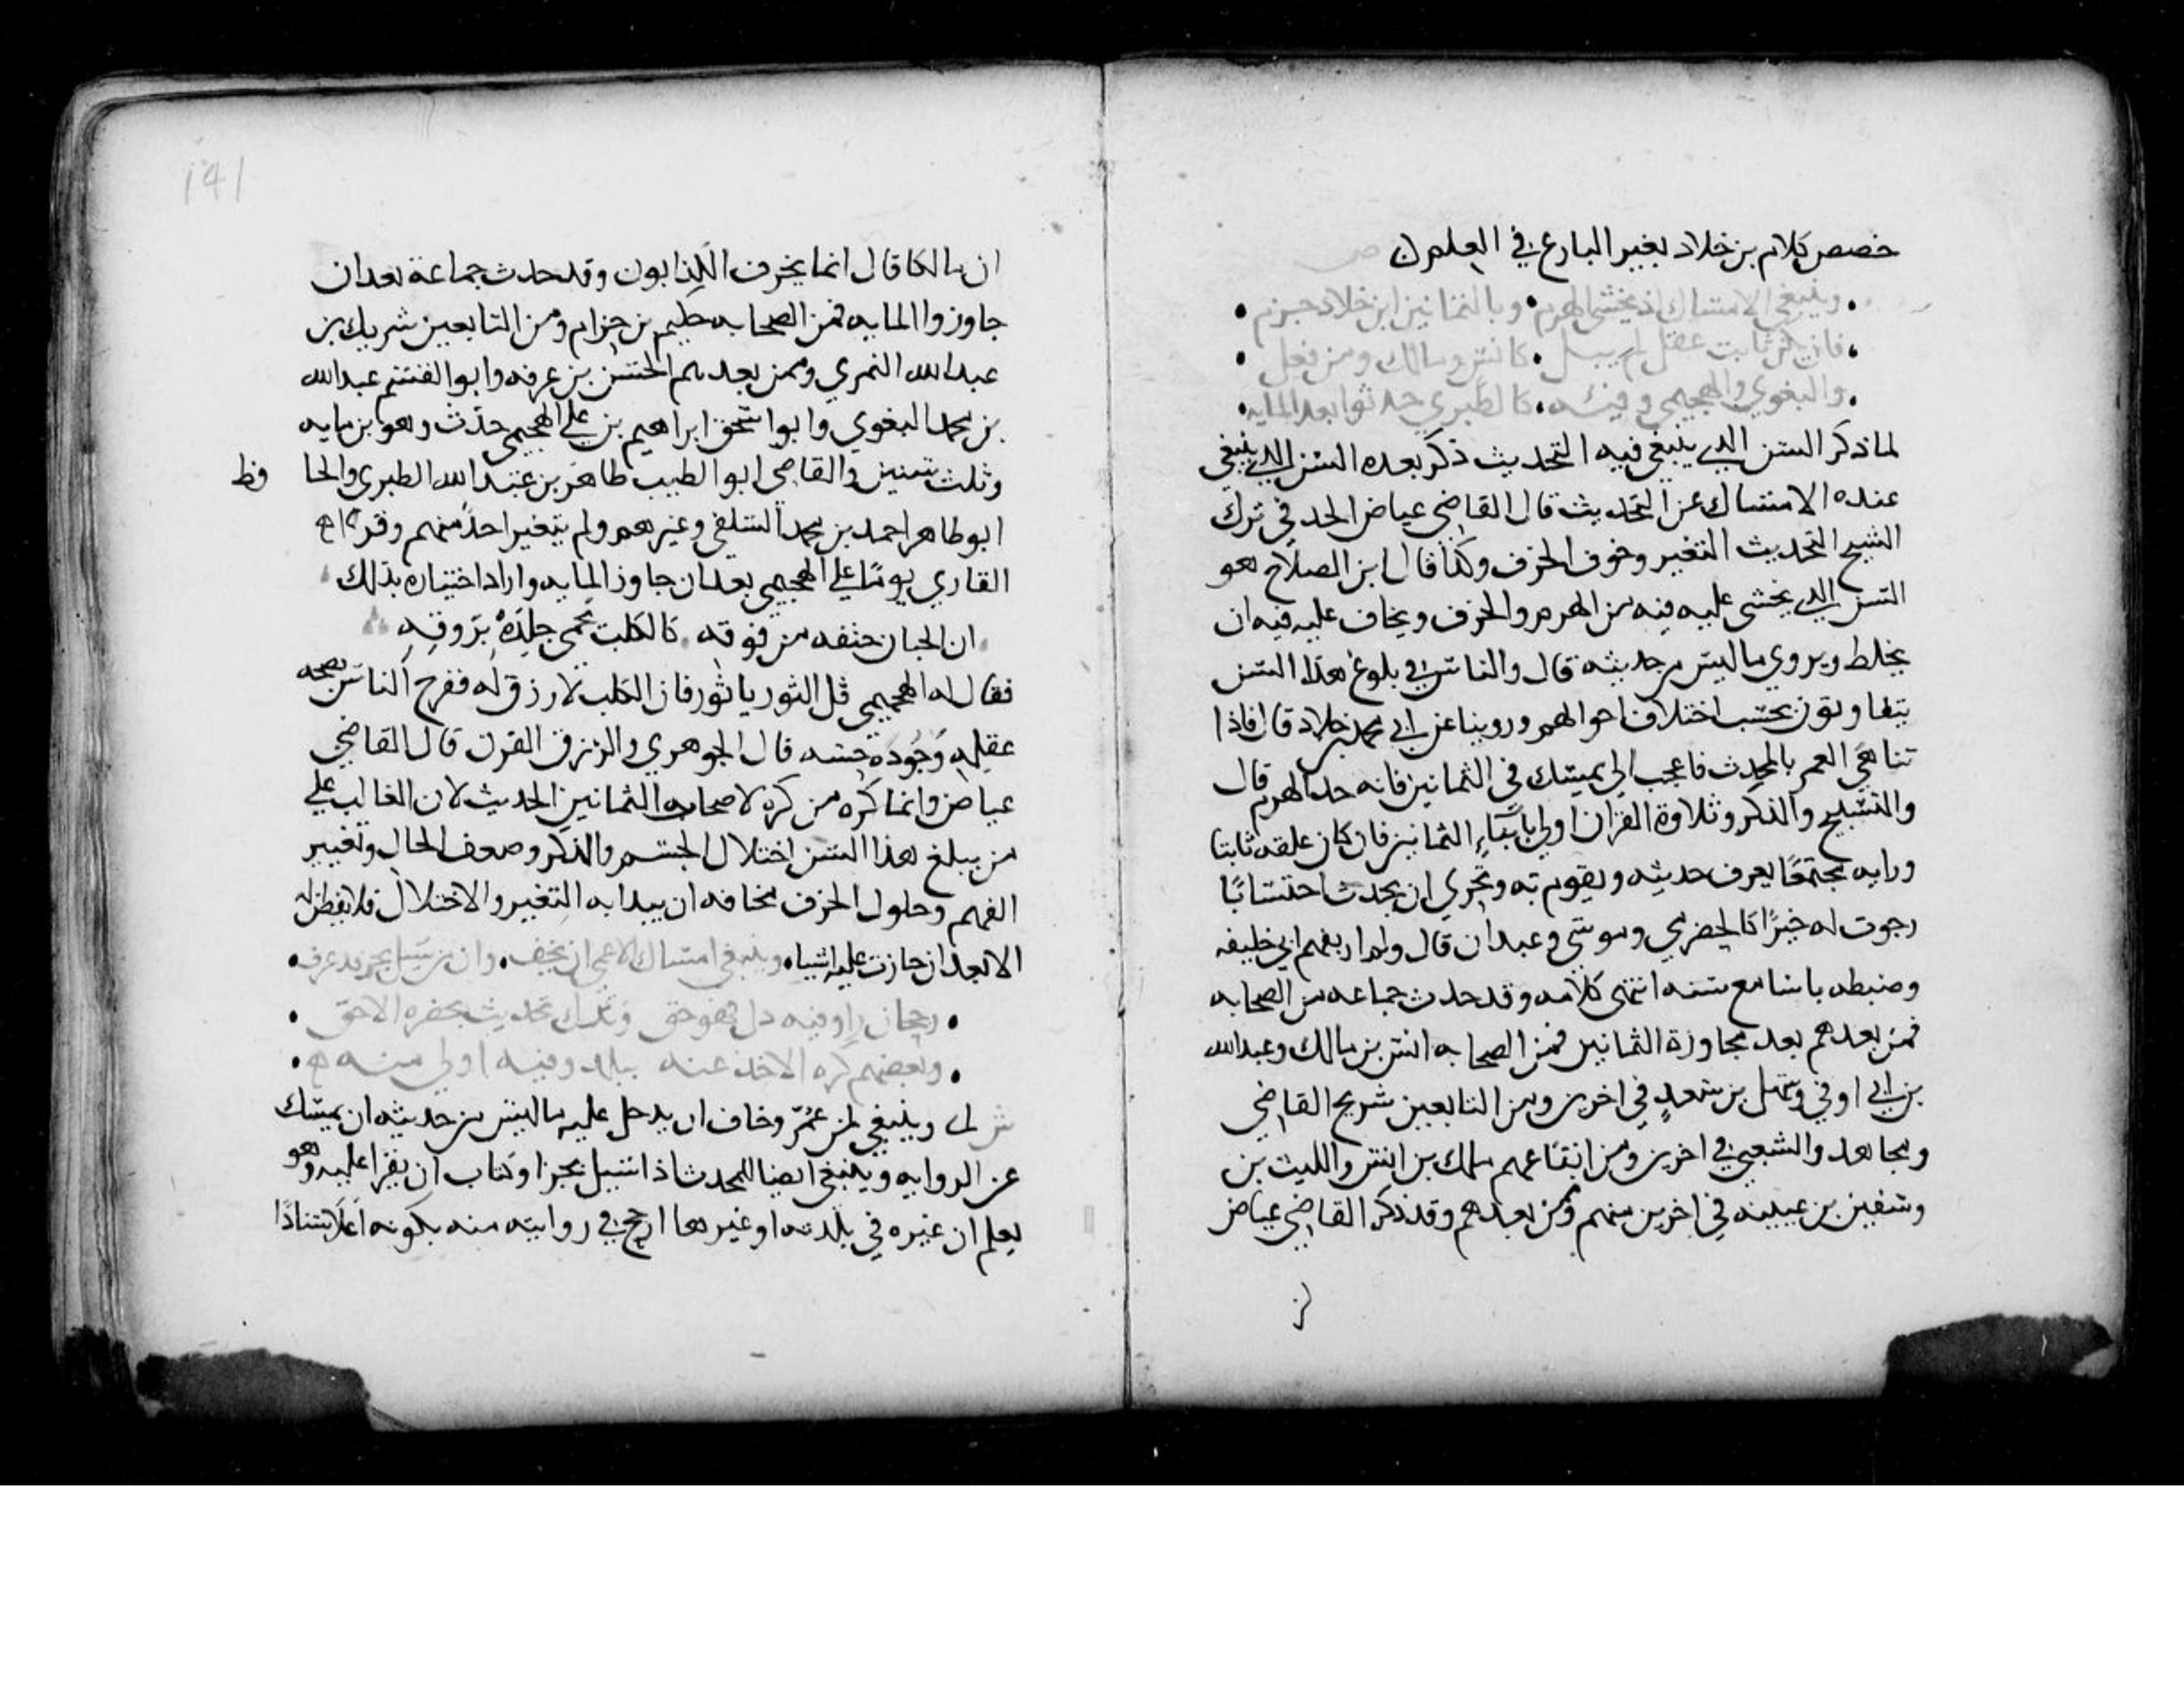 خصص كلام بن خلاد بغير البارع في العلم ن ص
وينبغي الامساك اذ يخشى الهرم • وبالثمانين ابن خلاد جزم
فان يكن ثابت عقل لم يبل • كانس ومالك ومن فعل
والبغوي والهجيمي وفئه • كالطبري حدثوا بعد المايه
لما ذكر السن الذي ينبغي فيه التحديث ذكر بعده السن الذي ينبغي
عنده الامساك عن التحديث قال القاضي عياض الحد في ترك
الشيخ التحديث التغير وخوف الخرف وكذا قال ابن الصلاح هو
السن الذي يخشى عليه فيه من الهرم والخرف ويخاف عليه فيه ان
يخلط ويروي ما ليس من حديثه قال والناس في بلوغ هذا السن
يتفاوتون بحسب اختلاف احوالهم وروينا عن ابي محمد بن خلاد قال فاذا
تناهى العمر بالمحدث فاعجب الي يمسك في الثمانين فانه حد الهرم قال
والتسبيح والذكر وتلاوة القران اولى بابناء الثمانين فان كان علقه ثابتا
ورايه مجتمعا يعرف حديثه ويقوم به وتحرى ان يحدث احتسابا
رجوت له خيرا كالحضرمي وموسى وعبدان قال ولم ار بفهم ابي خليفه
وضبطه باسا مع سنه انتهى كلامه وقد حدث جماعه من الصحابه
فمن بعدهم بعد مجاوزة الثمانين فمن الصحابه انس بن مالك وعبد الله
بن ابي اوفي وسهل بن سعد في اخرين ومن التابعين شريح القاضي
ومجاهد والشعبي في اخرين ومن اتباعهم ملك بن انس والليث بن
وسفين بن عيينه في اخرين منهم وممن بعدهم وقد ذكر القاضي عياض
141
ان مالكا قال انما يخرف الكذابون وقد حدث جماعة بعد ان
جاوزوا المايه فمن الصحابه حكيم بن حزام ومن التابعين شريك بن
عبد الله النمري وممن بعدهم الحسن بن عرفه وابو القسم عبد الله
بن محمد البغوي وابو اسحق ابراهيم بن علي الهجيمي حدث وهو ابن مايه
وثلث سنين والقاضي ابو الطيب طاهر بن عبد الله الطبري والحا فظ
ابو طاهر احمد بن محمد السلفي وغيرهم ولم يتغير احد منهم وقرا
القاري يوما على الهجيمي بعد ان جاوز المايه واراد اختباره بذلك
ان الجبان حتفه من فوقه • كالكلب يحمي جلده بروقه
فقال له الهجيمي قل الثور يا ثور فان الكلب لا روق له ففرح الناس بصحه
عقله وجودة حسه قال الجوهري والروق القرن قال القاضي
عياض وانما كره من كره لاصحاب الثمانين الحديث لان الغالب على
من يبلغ هذا السن اختلال الجسم والذكر وضعف الحال وتغيير
الفهم وحلول الخرف مخافه ان يبدا به التغير والاختلال فلا يفطن له
الا بعد ان جازت عليه اشيا • وينبغي امساك الاعمى ان يخف • وان من سيل بجزء قد عرف •
• رجحان راو فيه دل فهو حق وترك تحديث بحضره الاحق •
• وبعضهم كره الاخذ عنه ببلد وفيه اولى منه •
ش وينبغي لمن عمر وخاف ان يدخل عليه ما ليس من حديثه ان يمسك
عن الروايه وينبغي ايضا للمحدث اذا سيل بجزا وكتاب ان يقرا عليه وهو
يعلم ان غيره في بلدته او غيرها ارجح في روايته منه بكونه اعلا اسنادا